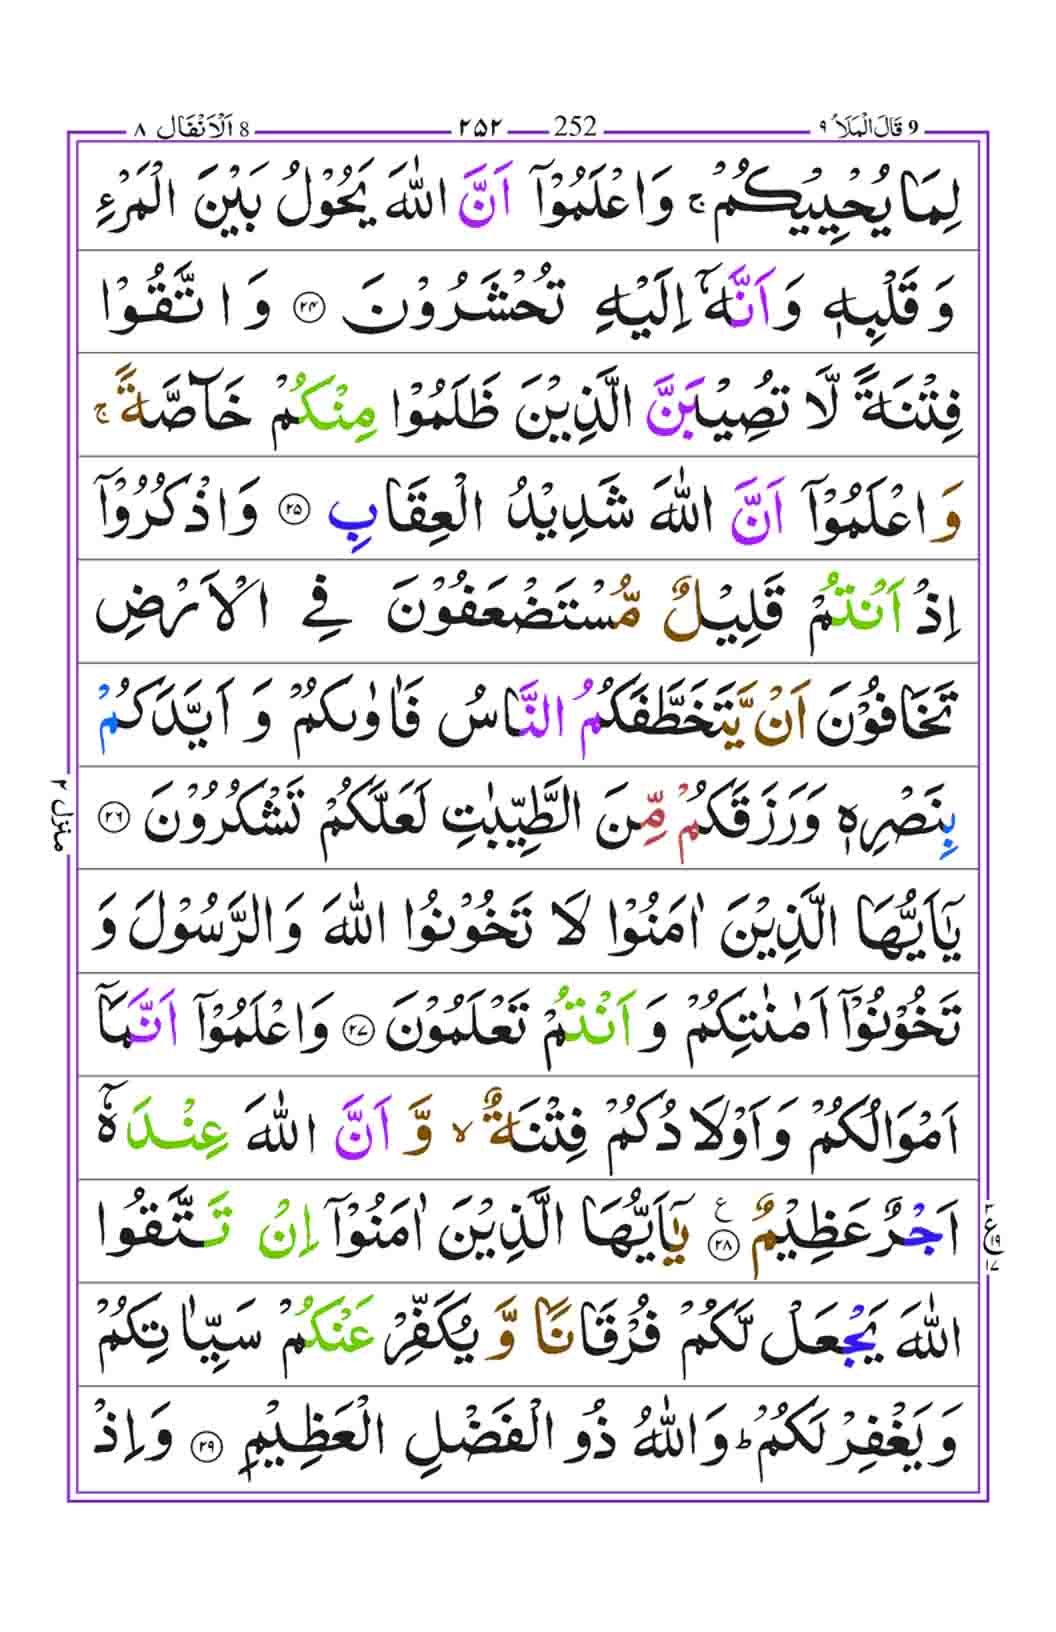 9 قَالَ الْمَلَاُ ۹ 252 ۲۵۲ 8 اَلْاَنْفَال ۸
لِمَا يُحْيِيْكُمْ ۚ وَاعْلَمُوْٓا اَنَّ اللّٰهَ يَحُوْلُ بَيْنَ الْمَرْءِ
وَقَلْبِهٖ وَاَنَّهٗٓ اِلَيْهِ تُحْشَرُوْنَ ۲۴ وَاتَّقُوْا
فِتْنَةً لَّا تُصِيْبَنَّ الَّذِيْنَ ظَلَمُوْا مِنْكُمْ خَآصَّةً ۚ
وَاعْلَمُوْٓا اَنَّ اللّٰهَ شَدِيْدُ الْعِقَابِ ۲۵ وَاذْكُرُوْٓا
اِذْ اَنْتُمْ قَلِيْلٌ مُّسْتَضْعَفُوْنَ فِي الْاَرْضِ
تَخَافُوْنَ اَنْ يَّتَخَطَّفَكُمُ النَّاسُ فَاٰوٰىكُمْ وَاَيَّدَكُمْ
بِنَصْرِهٖ وَرَزَقَكُمْ مِّنَ الطَّيِّبٰتِ لَعَلَّكُمْ تَشْكُرُوْنَ ۲۶
يٰٓاَيُّهَا الَّذِيْنَ اٰمَنُوْا لَا تَخُوْنُوا اللّٰهَ وَالرَّسُوْلَ وَ
تَخُوْنُوْٓا اَمٰنٰتِكُمْ وَاَنْتُمْ تَعْلَمُوْنَ ۲۷ وَاعْلَمُوْٓا اَنَّمَآ
اَمْوَالُكُمْ وَاَوْلَادُكُمْ فِتْنَةٌ ۙ وَّاَنَّ اللّٰهَ عِنْدَهٗٓ
اَجْرٌ عَظِيْمٌ ۲۸ ع يٰٓاَيُّهَا الَّذِيْنَ اٰمَنُوْٓا اِنْ تَتَّقُوا
اللّٰهَ يَجْعَلْ لَّكُمْ فُرْقَانًا وَّيُكَفِّرْ عَنْكُمْ سَيِّاٰتِكُمْ
وَيَغْفِرْ لَكُمْ ؕ وَاللّٰهُ ذُو الْفَضْلِ الْعَظِيْمِ ۲۹ وَاِذْ
منزل ۲
۳
ع
۱۹
۱۷